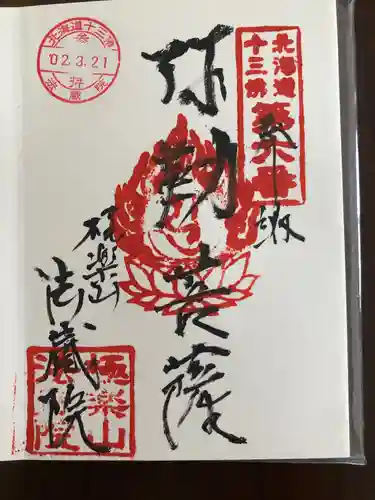 北海道
十三佛
第六番
奉拝
弥勒菩薩
極楽山
法蔵院
北海道十三佛
参拝
'02.3.21
法蔵院
極楽山
法蔵院